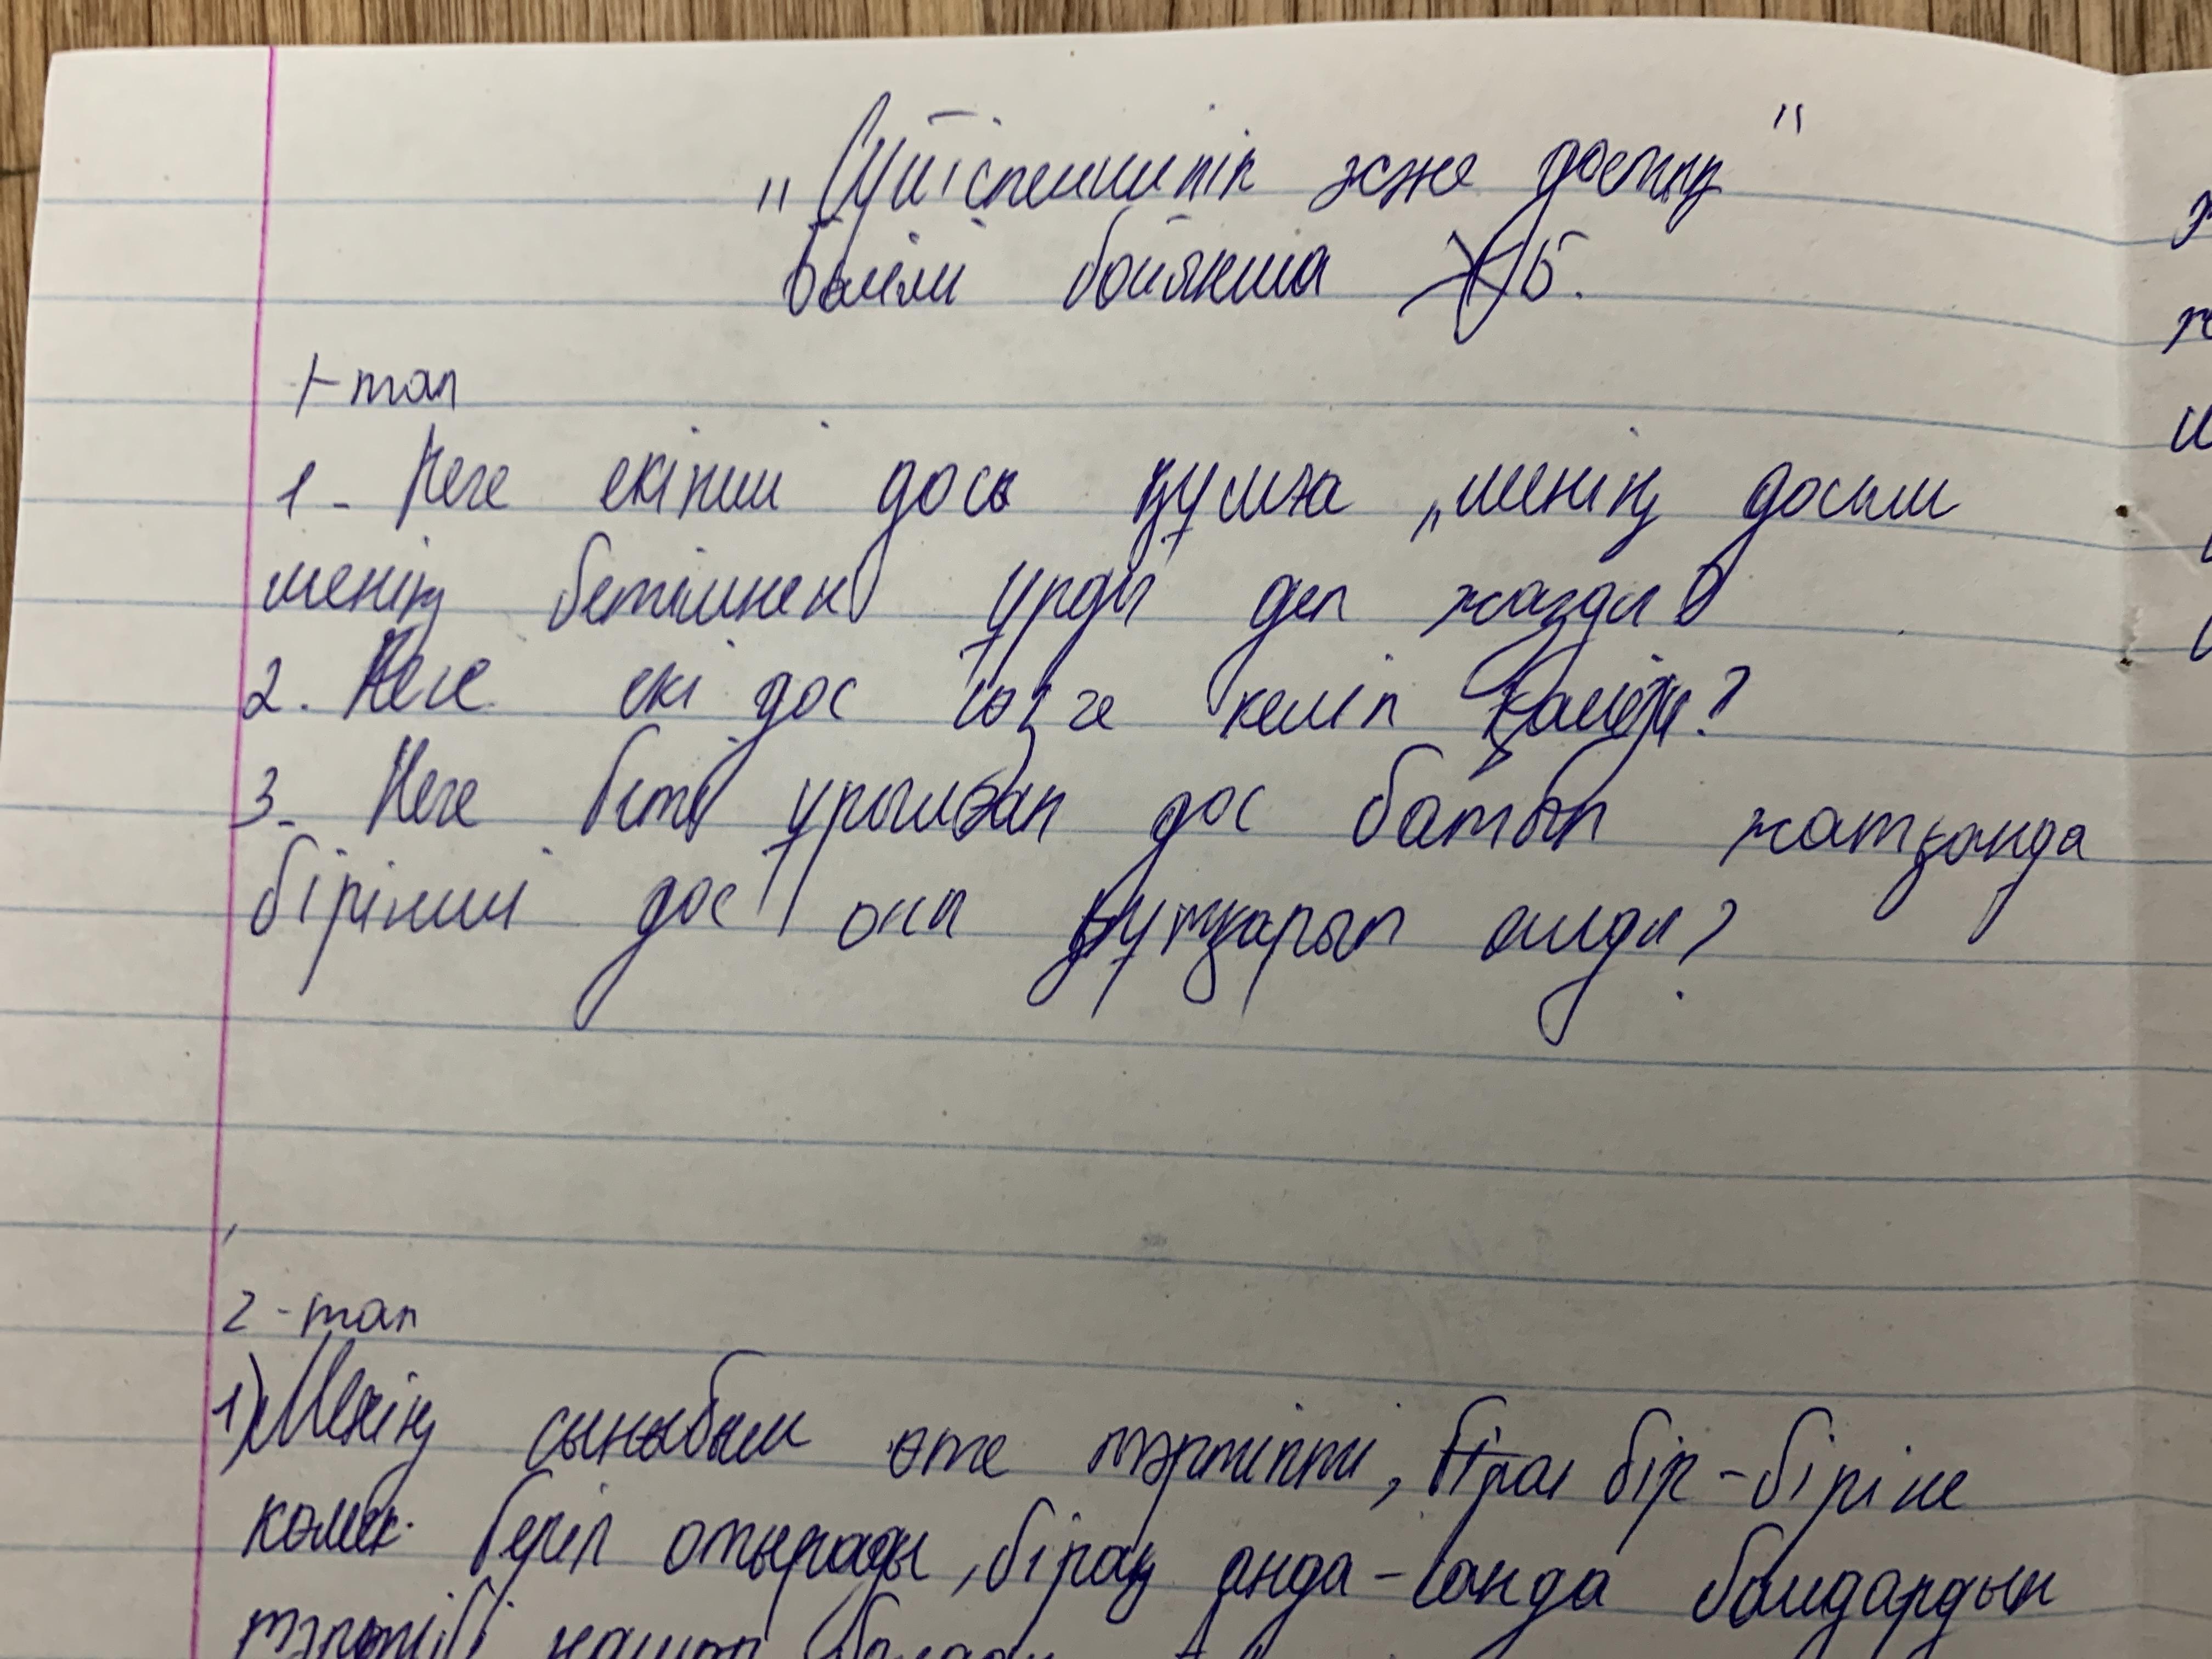 "Сүйіспеншілік және достық"
бөлімі бойынша ЖБ.
1-тап
1- Неге екінші досы құмға „менің досым
менің бетімнен ұрды деп жазды?
2. Неге екі дос сөзге келіп қалды?
3- Неге беті ұрылған дос батып жатқанда
бірінші дос оны құтқарып алды?
2-тап
1) Менің сыныбым өте тәртіпті, бірақ бір-біріне
көмек беріп отырады, бірақ анда-санда балдардын
тәртібі нашар болады